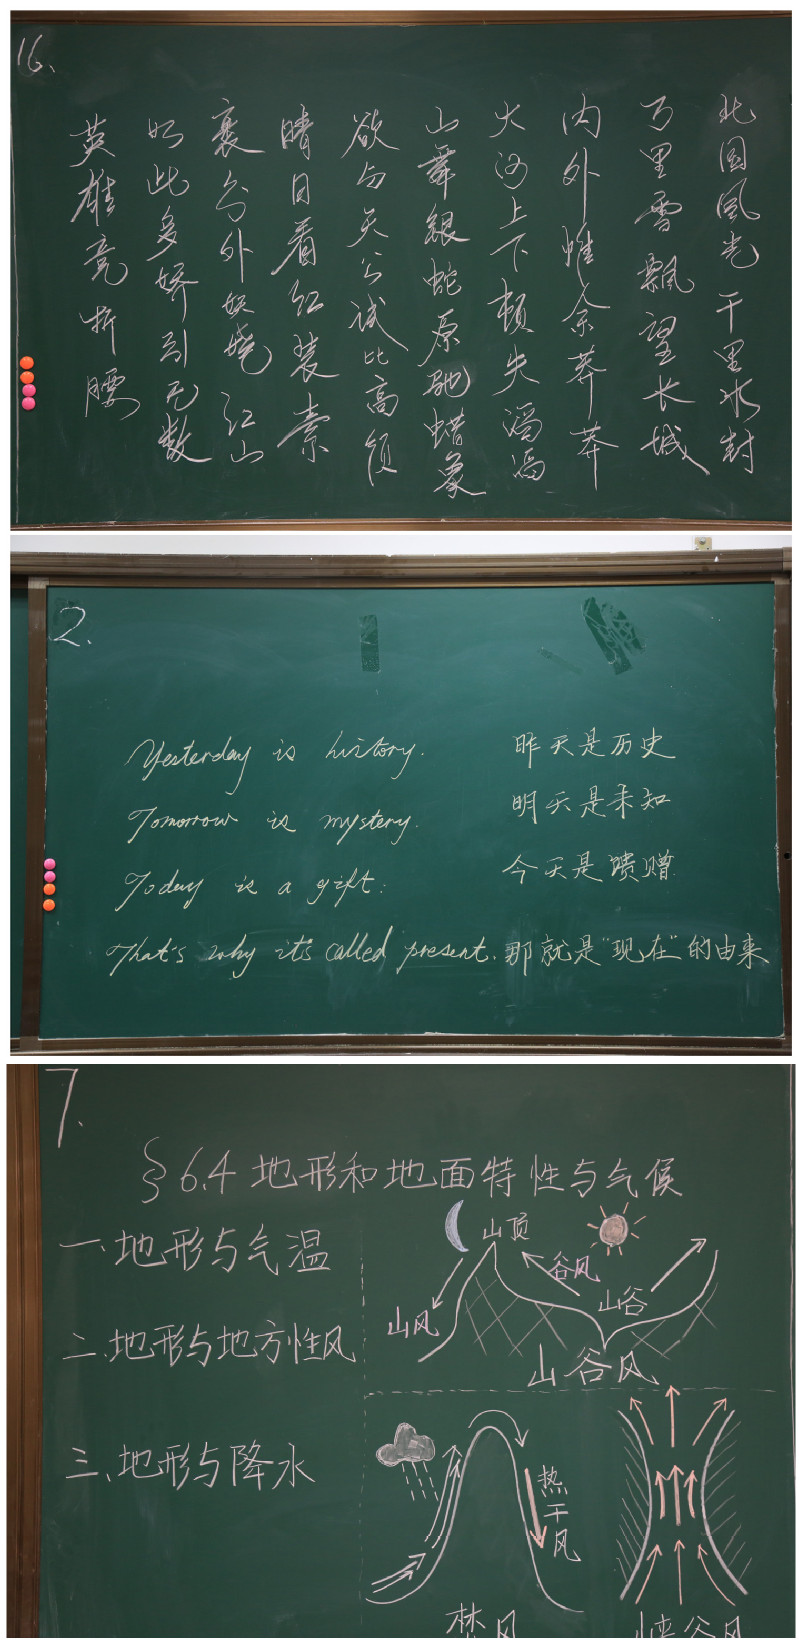 16.
北国風光千里冰封
万里雪飘望长城
内外惟余莽莽
大河上下顿失滔滔
山舞银蛇原驰蜡象
欲与天公试比高须
晴日看红装素
裹分外妖娆江山
如此多娇引无数
英雄竞折腰
2.
Yesterday is history. 昨天是历史
Tomorrow is mystery. 明天是未知
Today is a gift. 今天是馈赠.
That's why it's called present. 那就是“现在”的由来
7.
§6.4 地形和地面特性与气候
一.地形与气温
二.地形与地方性风
三.地形与降水
山顶
谷风
山谷
山风
山谷风
热干风
焚风
峡谷风